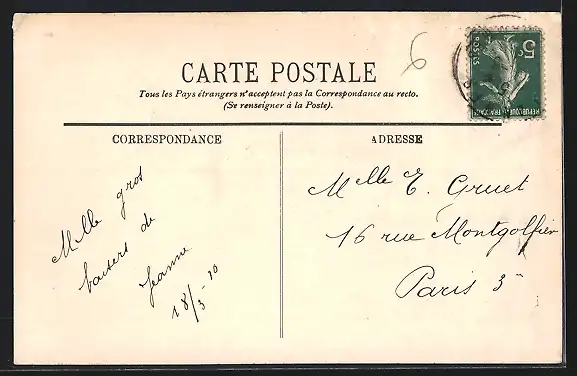 6
CARTE POSTALE
Tous les Pays étrangers n'acceptent pas la Correspondance au recto.
(Se renseigner à la Poste).
5c
POSTES
REPUBLIQUE FRANÇAISE
CORRESPONDANCE
Mille gros
baisers de
Jeanne
18/3-10
ADRESSE
Mlle E. Gruet
16 rue Montgolfier
Paris 3e